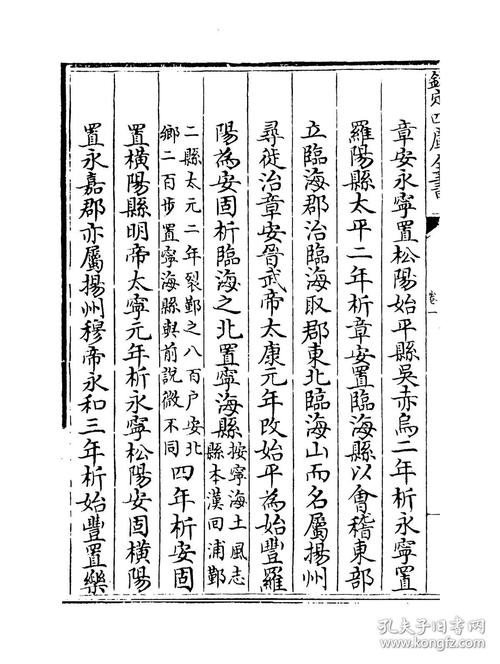 欽定四庫全書
卷一
章安永寧置松陽始平縣吳赤烏二年析永寧置
羅陽縣太平二年析章安置臨海縣以會稽東部
立臨海郡治臨海取郡東北臨海山而名屬揚州
尋徙治章安晉武帝太康元年改始平為始豐羅
陽為安固析臨海之北置寧海縣
按寧海土風志
縣本漢回浦鄞
二縣太元二年裂鄞之八百户安北
鄉二百步置寧海縣與前說微不同
四年析安固
置橫陽縣明帝太寧元年析永寧松陽安固橫陽
置永嘉郡亦屬揚州穆帝永和三年析始豐置樂
孔夫子旧书网
kongfz.com